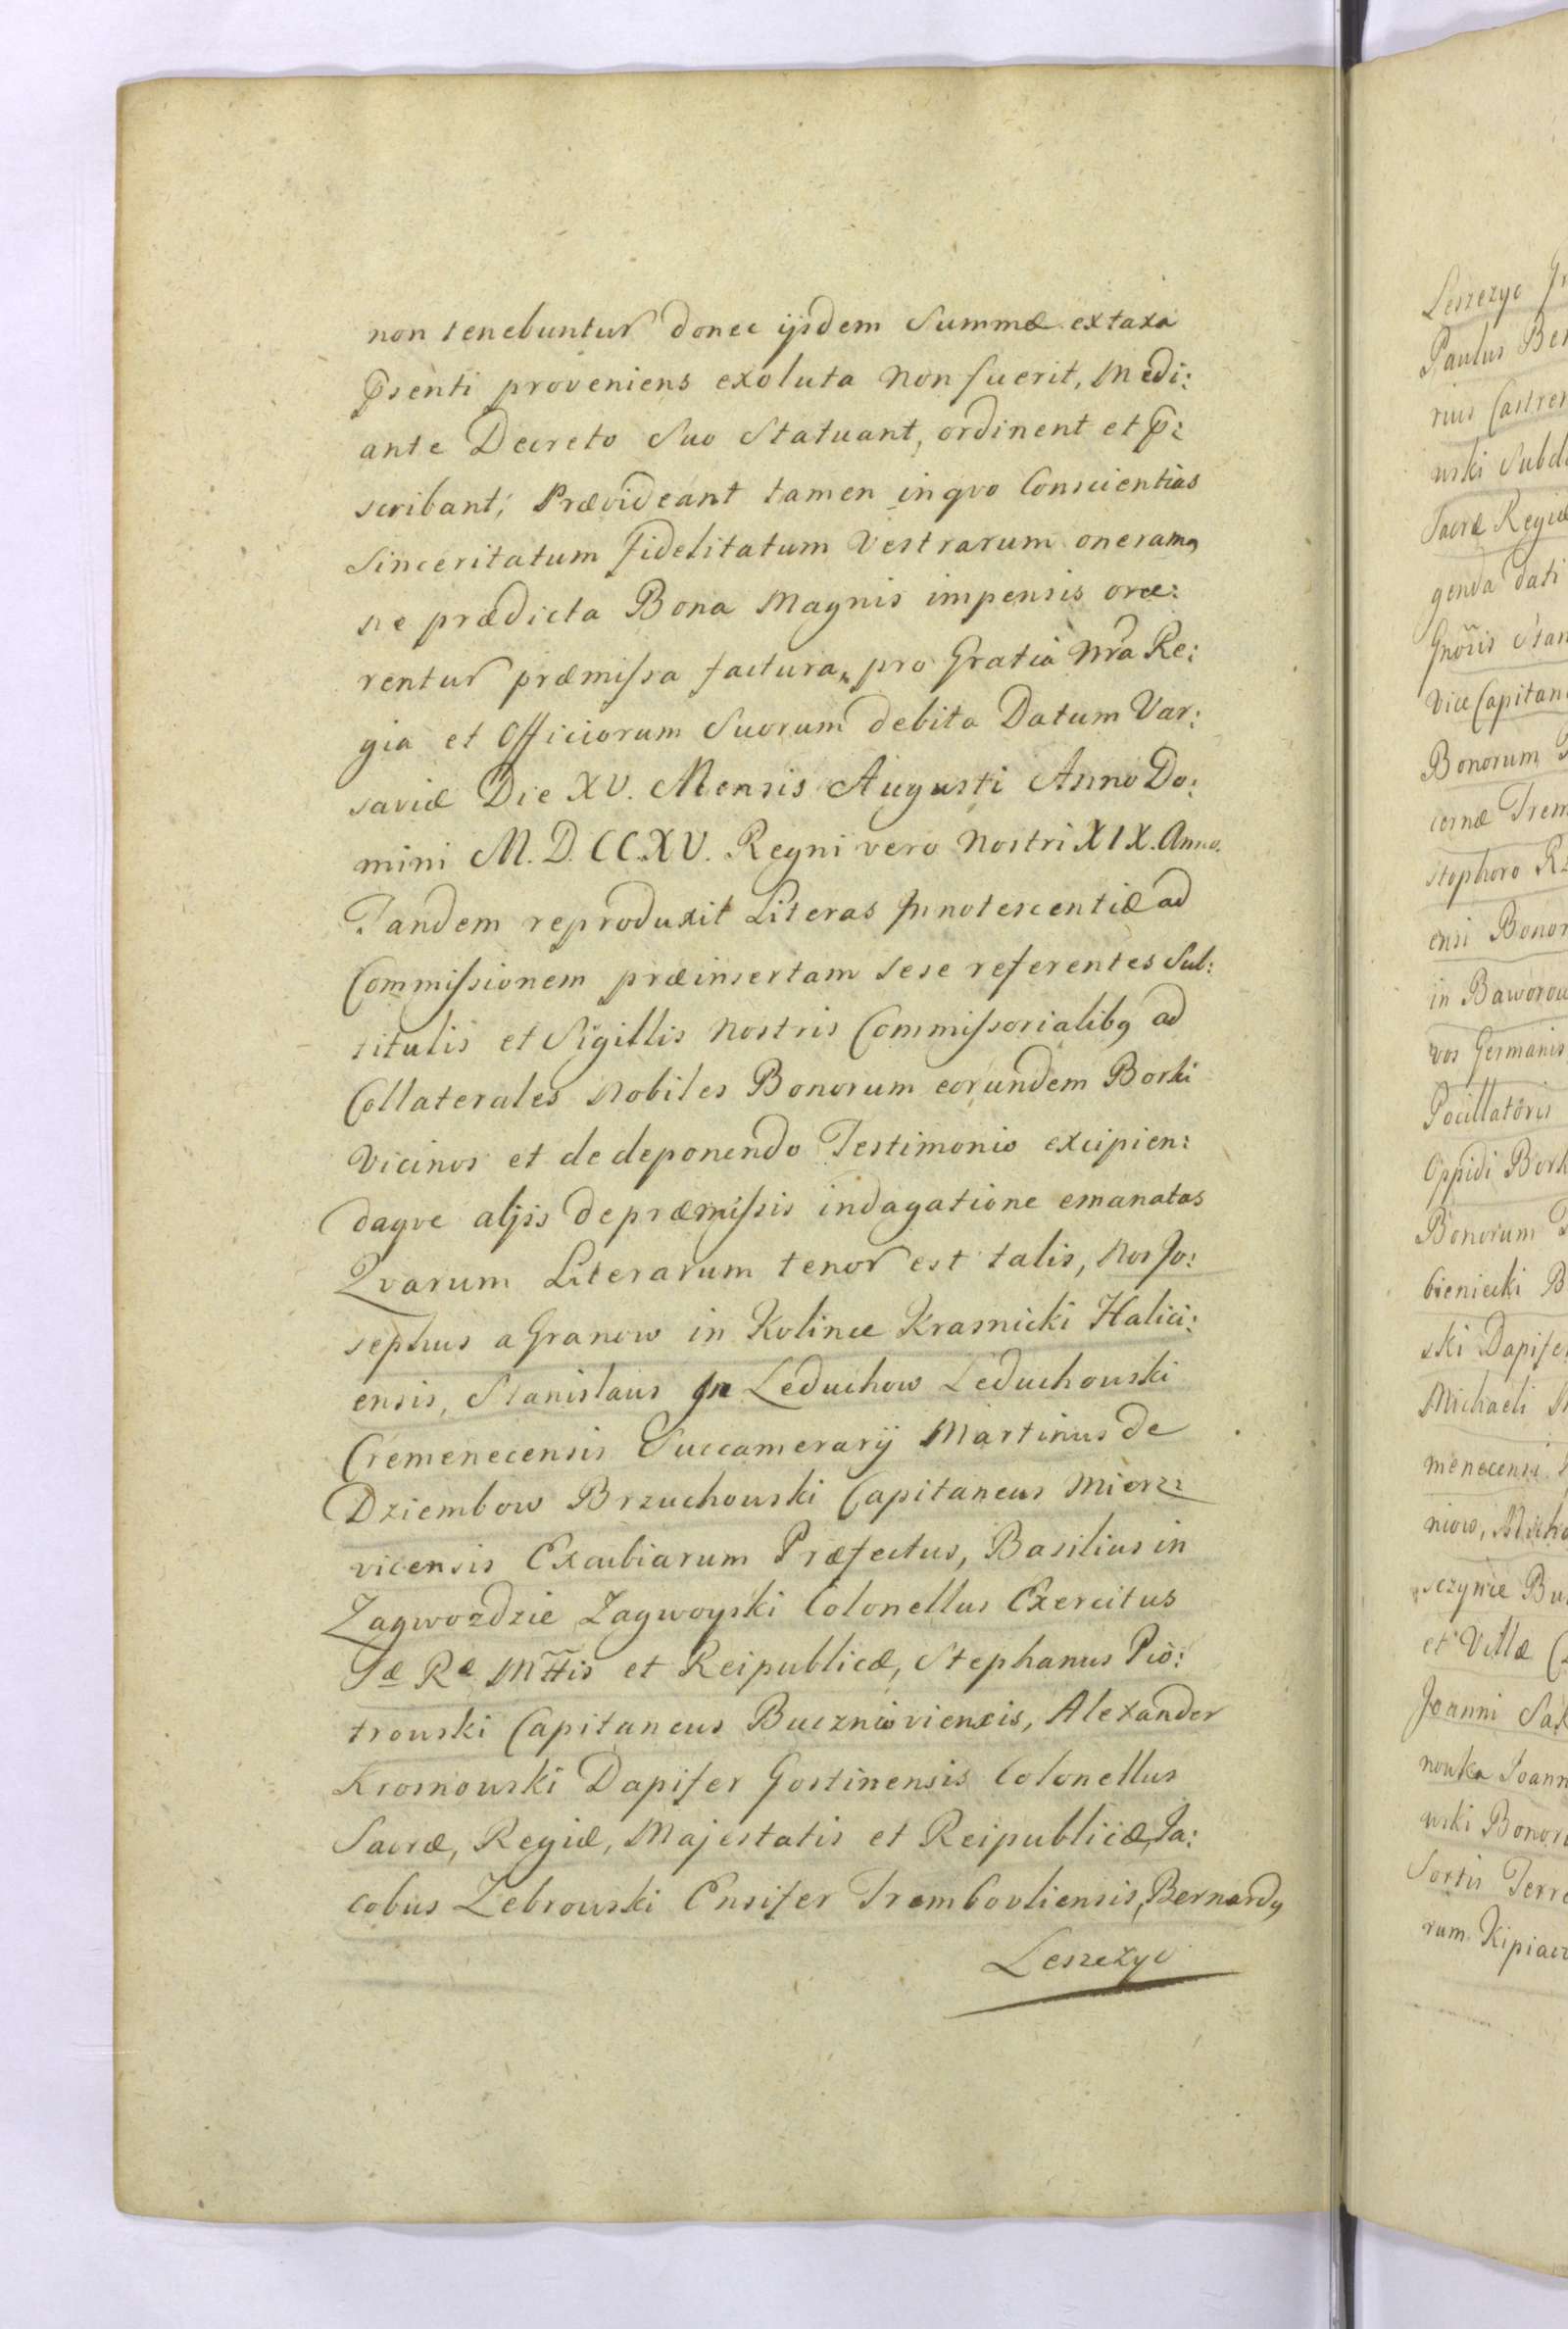 non tenebuntur donec ijsdem Summæ extaxa
p̄senti proveniens exoluta non fuerit, Medi:
ante Decreto Suo Statuant, ordinent et p̄:
scribant; Prævideant tamen in qvo Conscientias
Sinceritatum Fidelitatum Vestrarum oneramꝯ
ne prædicta Bona Magnis impensis one:
rentur præmissa factura, pro Gratia Nr̄a Re:
gia et Officiorum Suorum debita Datum Var:
saviæ Die XV. Mensis Augusti Anno Do:
mini M.D.CC.XV. Regni vero Nostri XIX. Anno.
Tandem reproduxit Literas Innotescentiæ ad
Commissionem præinsertam sese referentes Sub:
titulis et Sigillis Nostris Commissorialibꝯ ad
Collaterales Nobiles Bonorum eorundem Borki
Vicinos et de deponendo Testimonio excipien:
daqve alijs de præmissis indagatione emanatas
Qvarum Literarum tenor est talis, Nos Jo:
sephus a Granow in Kolince Krasnicki Halici:
ensis, Stanislaus In Leduchow Leduchowski
Cremenecensis Succamerarij Martinus de
Dziembow Brzuchowski Capitaneus Mierz:
vicensis Excubiarum Præfectus, Basilius in
Zagwozdzie Zagwoyski Colonellus Exercitus
Sæ Ræ Mttis et Reipublicæ, Stephanus Pio:
trowski Capitaneus Buczniovienсis, Alexander
Krosnowski Dapifer Gostinensis Colonellus
Sacræ, Regiæ, Majestatis et Reipublicæ, Ja:
cobus Zebrowski Ensifer Trembovliensis, Bernardꝯ
Leszczyc
Leszczyc
Paulus
rius Castren
wski
Sacræ Regiæ
genda dati
Gnōsis Stan
Vice Capitan
Bonorum
cernæ Trem
stophoro
ensi Bonor
in Baworow
vos Germanis
Pocillatoris
Oppidi Bork
Bonorum
bieniecki B
ski Dapifer
Michaeli
menecensi
niow,
sczynie
et Villæ
Joanni
nowka Joann
wski Bonor
Sortis Terre
rum